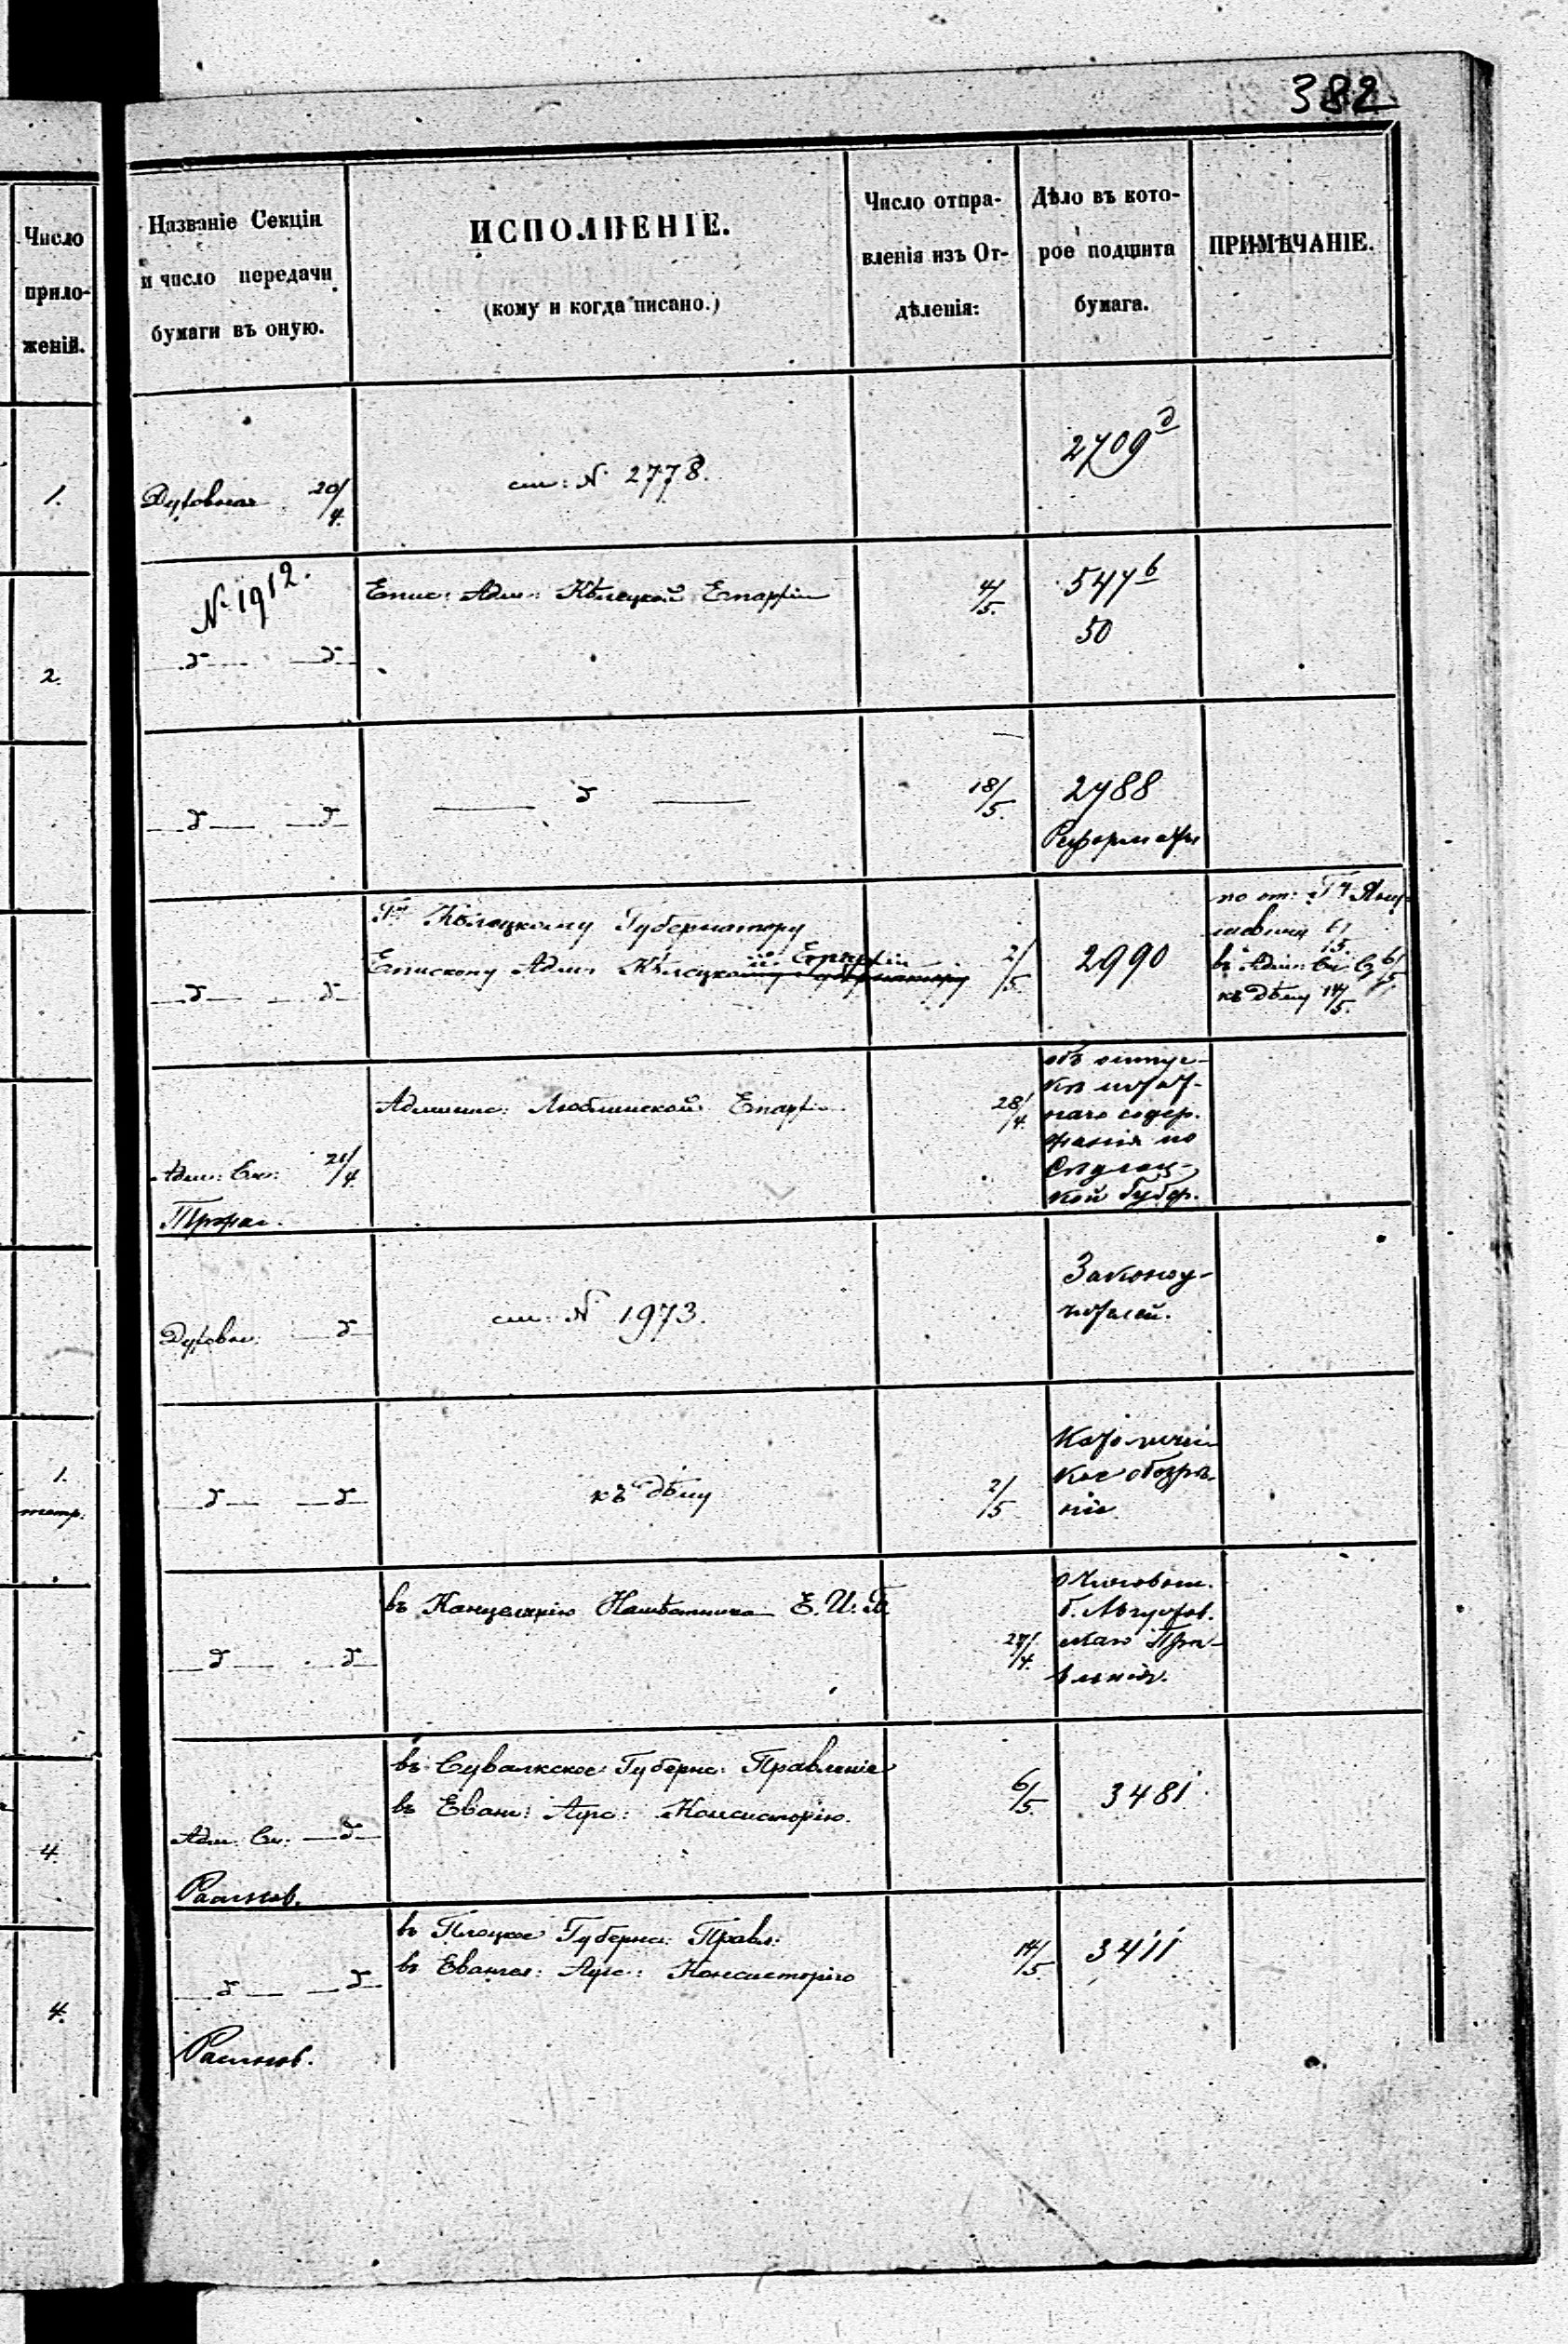 382
Число
прило-
женій.
Названіе Секціи
и число передачи
бумаги въ оную.
ИСПОЛНЕНІЕ.
(кому и когда писано.)
Число отпра-
вленія изъ От-
дѣленія:
Дѣло въ кото-
рое подшита
бумага.
ПРИМѢЧАНІЕ.
1.
Духовная 20/4.
см: № 2778.
2709 д
2.
№ 1912.
д д
Епис: Адм: Кѣлецкой Епархіи
4/5.
547 б
50
д д
д
18/5.
2788
Реформаты
д д
Гну Кѣлецкому Губернатору
Епископу Адм: Кѣлецкой Епархіи
2/5
2990
по от: Гн
въ Адм: Ск: 6/5
къ дѣлу 14/5.
Адм: Ск: 21/4.
Админис: Люблинской Епархіи
28/4.
объ отпус-
кѣ штат-
наго содер-
жанія по
Сѣдлец-
кой Губер.
Духовн: д
см: № 1973.
Законоу-
чителей.
1.
тетр.
д д
къ дѣлу
2/5
Католичес
кое обозрѣ-
ніе
д д
въ Канцелярію Намѣстника Е. И. В.
27/4.
о Чиновн.
б. Августов.
скаго Пра-
вленія.
4.
Адм: Ск: д
въ Сувалкское Губернс: Правленіе
въ Еванг: Аугс: Консисторію.
6/5.
3481
4.
д д
въ Плоцкое Губернс: Правл:
въ Евангел: Аугс: Консисторію
14/5.
3411